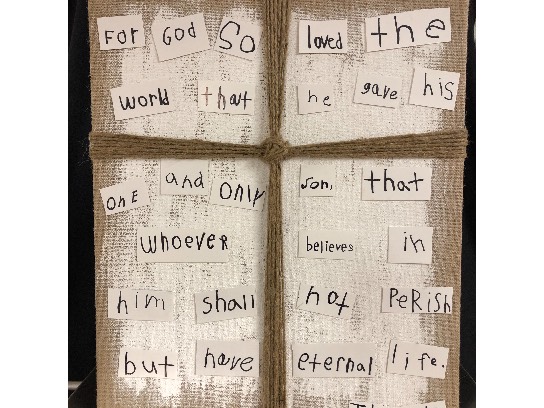 FOR GOD So loved the
world that he gave his
onE and only son, that
whoever believes in
him shall not PeRish
but have eternal life.